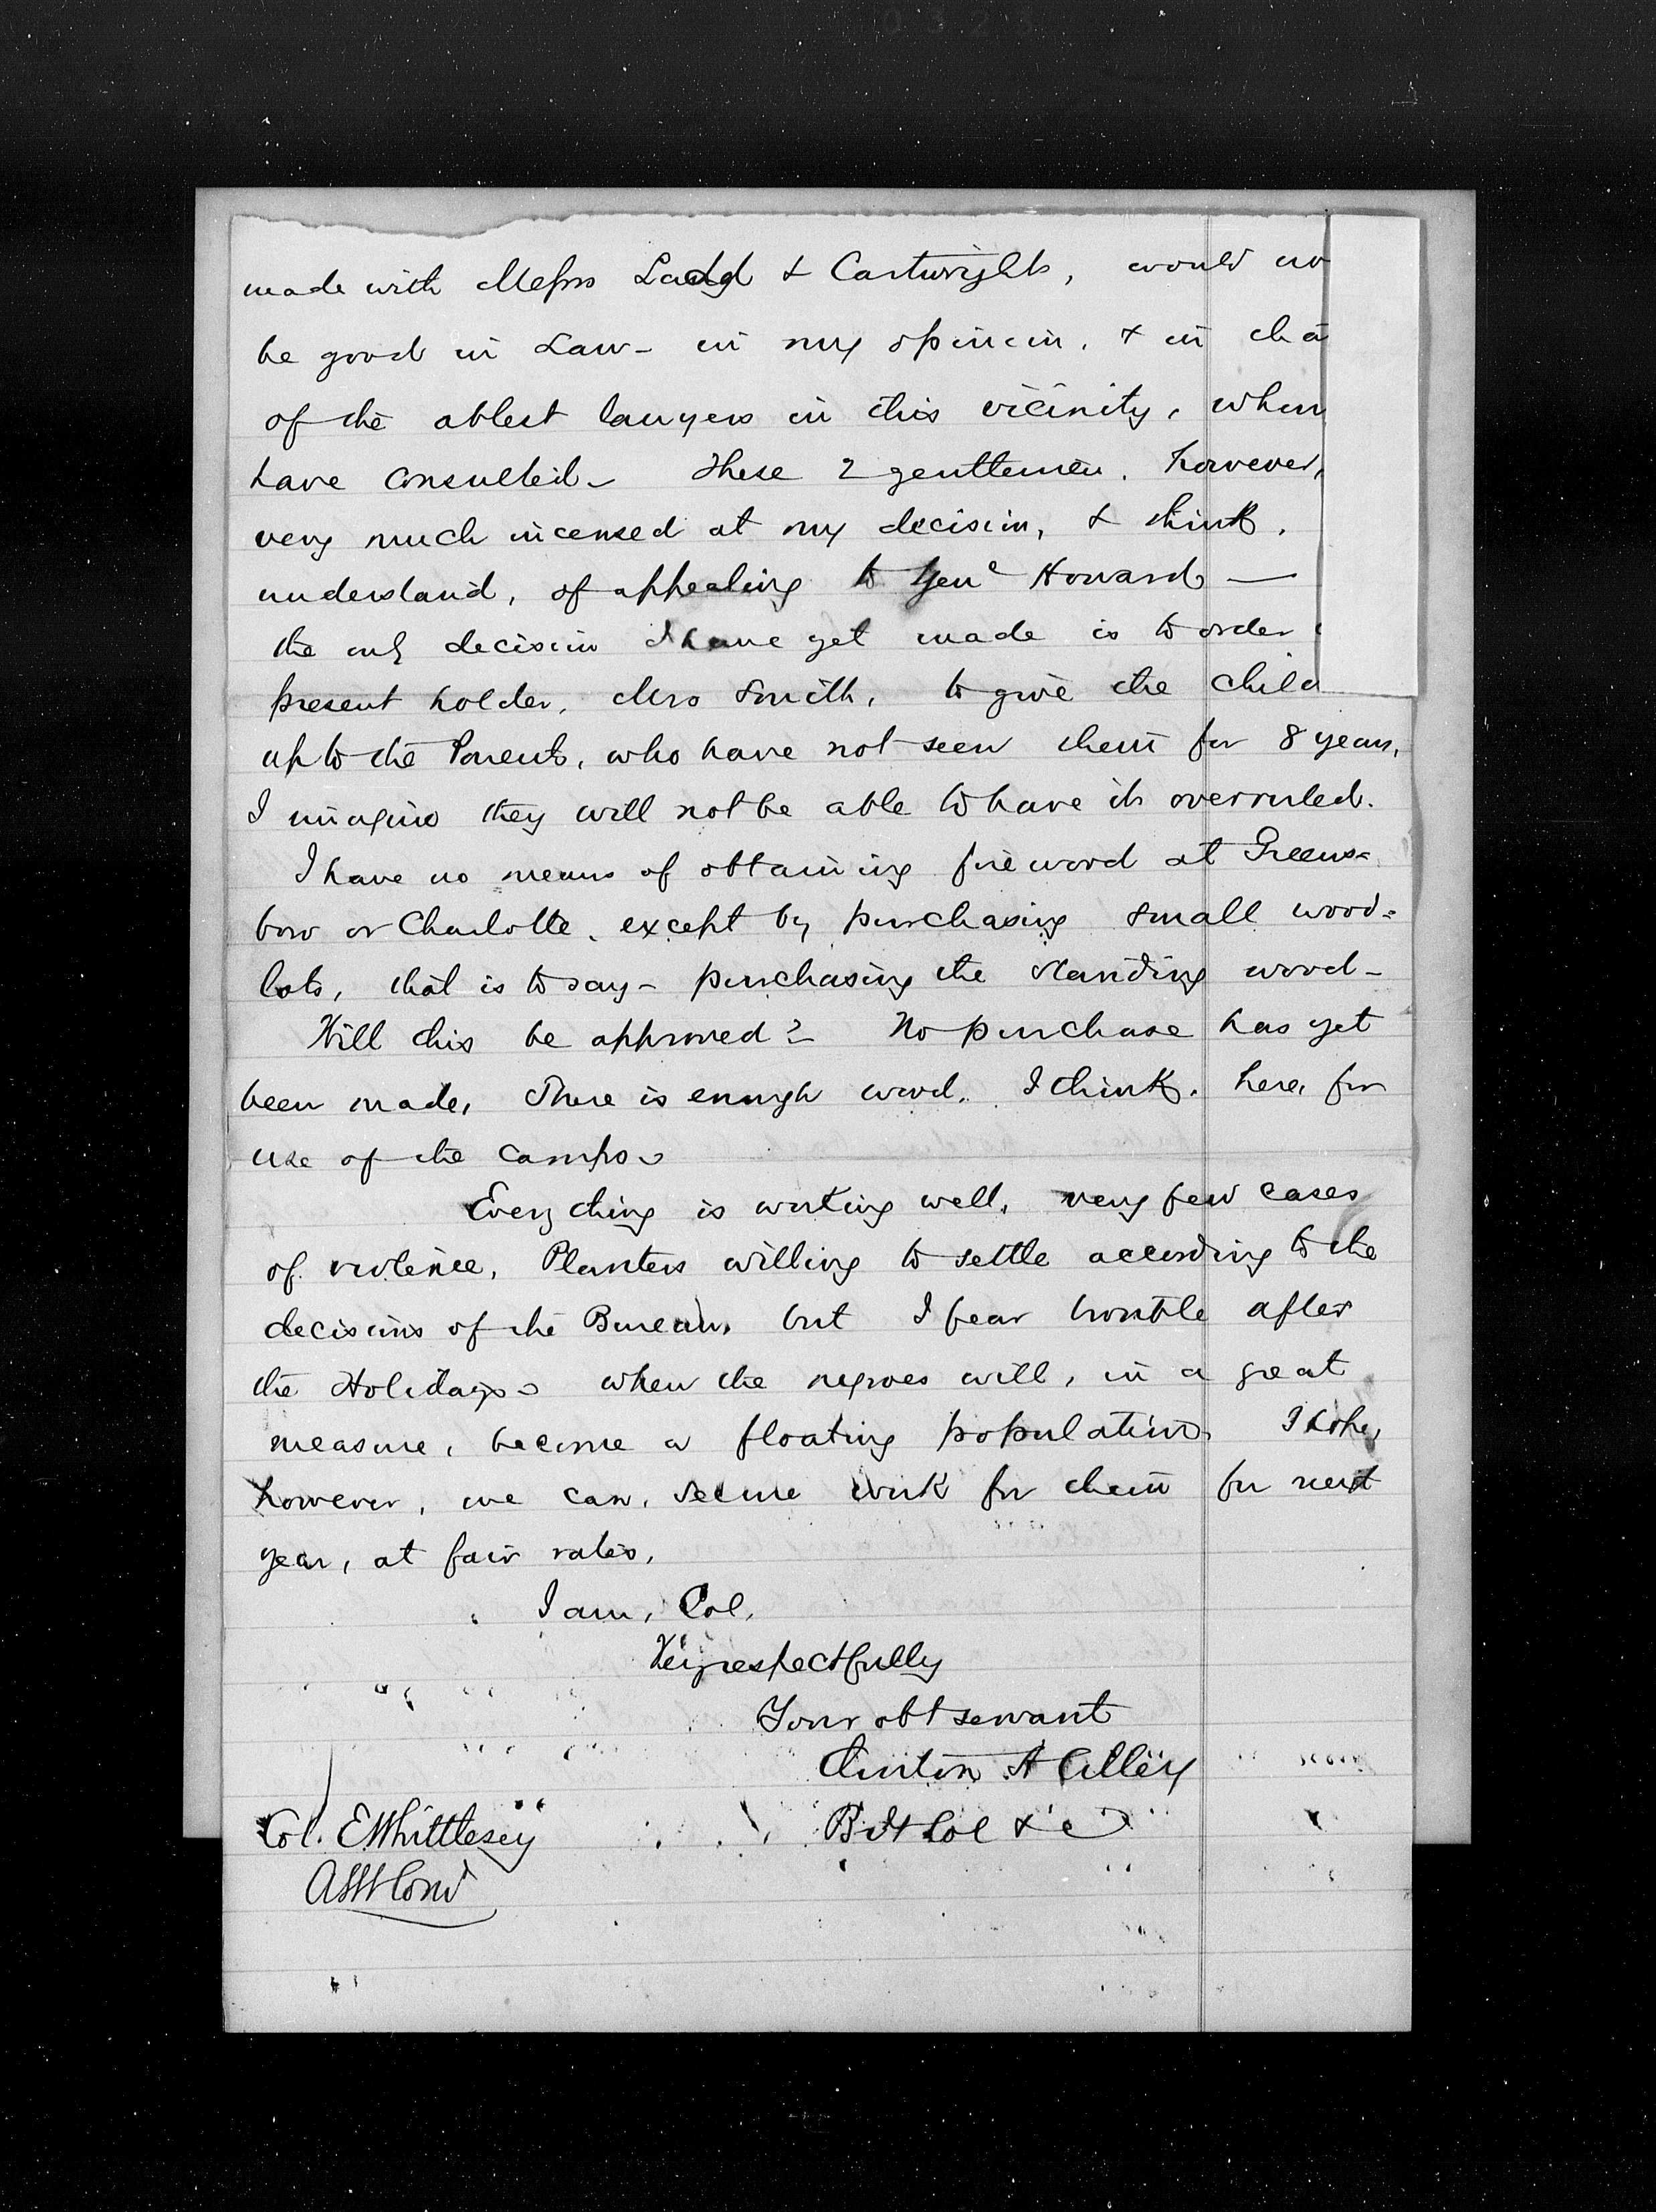 made with Messrs Ladd & Cartwright, would no
be good in Law - in my opinion, & in tha
of the ablest lawyers in this vicinity, whom
have consulted - These 2 gentlemen, however,
very much incensed at my decision, & think,
understand, of appealing to Genl Howard —
the only decision I have yet made is to order
present holder, Mrs Smith, to give the child
up to the Parents, who have not seen them for 8 years,
I imagine they will not be able to have it overruled.
I have no means of obtaining fire wood at Greens=
boro or Charlotte, except by purchasing small wood=
lots, that is to say - purchasing the standing wood -
Will this be approved? No purchase has yet
been made, There is enough wood, I think, here, for
use of the camps
Every thing is working well, very few cases
of violence, Planters willing to settle according to the
decisions of the Bureau, but I fear trouble after
the Holidays when the negroes will, in a great
measure, become a floating population. I hope,
however, we can, secure work for them for next
year, at fair rates,
I am, Col,
Very respectfully
Your obt servant
Clinton A Cilley
Bvt Col &c
Col. E Whittlesey
Asst Comr